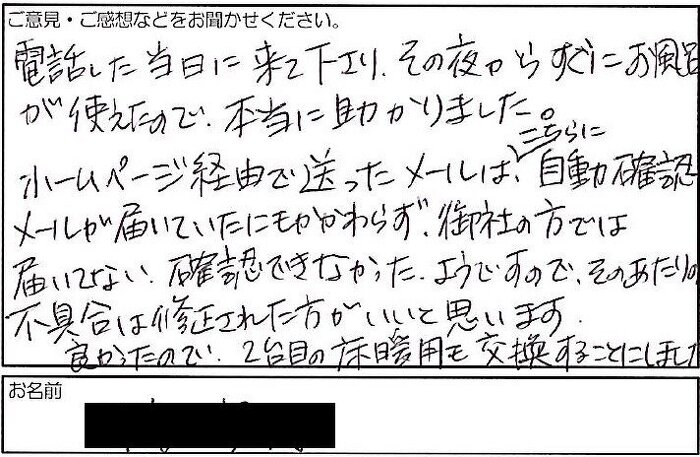 ご意見・ご感想などをお聞かせください。
電話した当日に来て下さり、その夜からすぐにお風呂
が使えたので、本当に助かりました。
こちらに
ホームページ経由で送ったメールは、自動確認
メールが届いていたにもかかわらず、御社の方では
届いてない、確認できなかった、ようですので、そのあたりの
不具合は修正された方がいいと思います。
良かったので、2台目の床暖用も交換することにしました
お名前